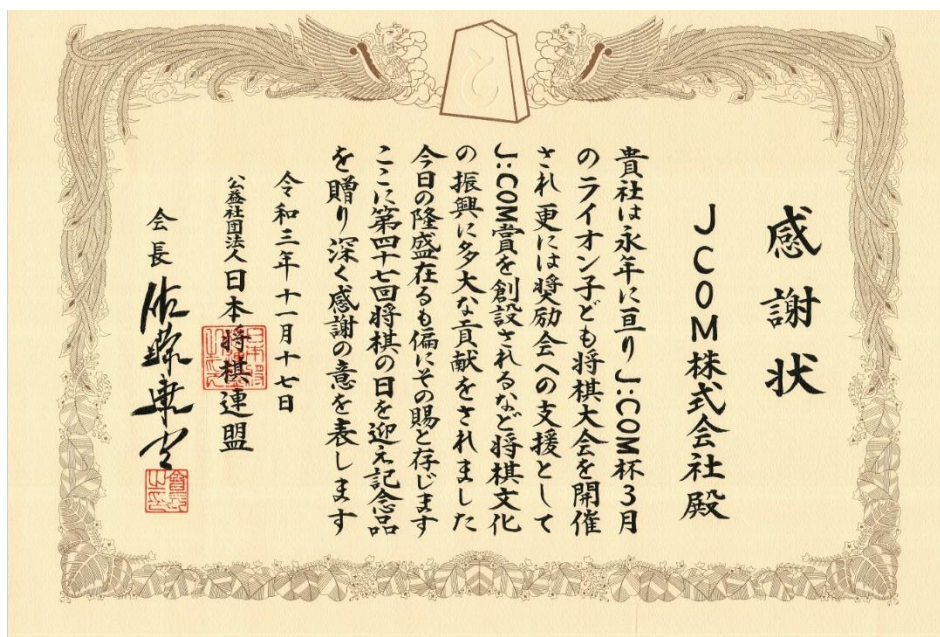 と
感謝状
JCOM株式会社殿
貴社は永年に亘りJ:COM杯3月
のライオン子ども将棋大会を開催
され更には奨励会への支援として
J:COM賞を創設されるなど将棋文化
の振興に多大な貢献をされました
今日の隆盛在るも偏にその賜と存じます
ここに第四十七回将棋の日を迎え記念品
を贈り深く感謝の意を表します
令和三年十一月十七日
公益社団法人日本将棋連盟
会長 佐藤康光